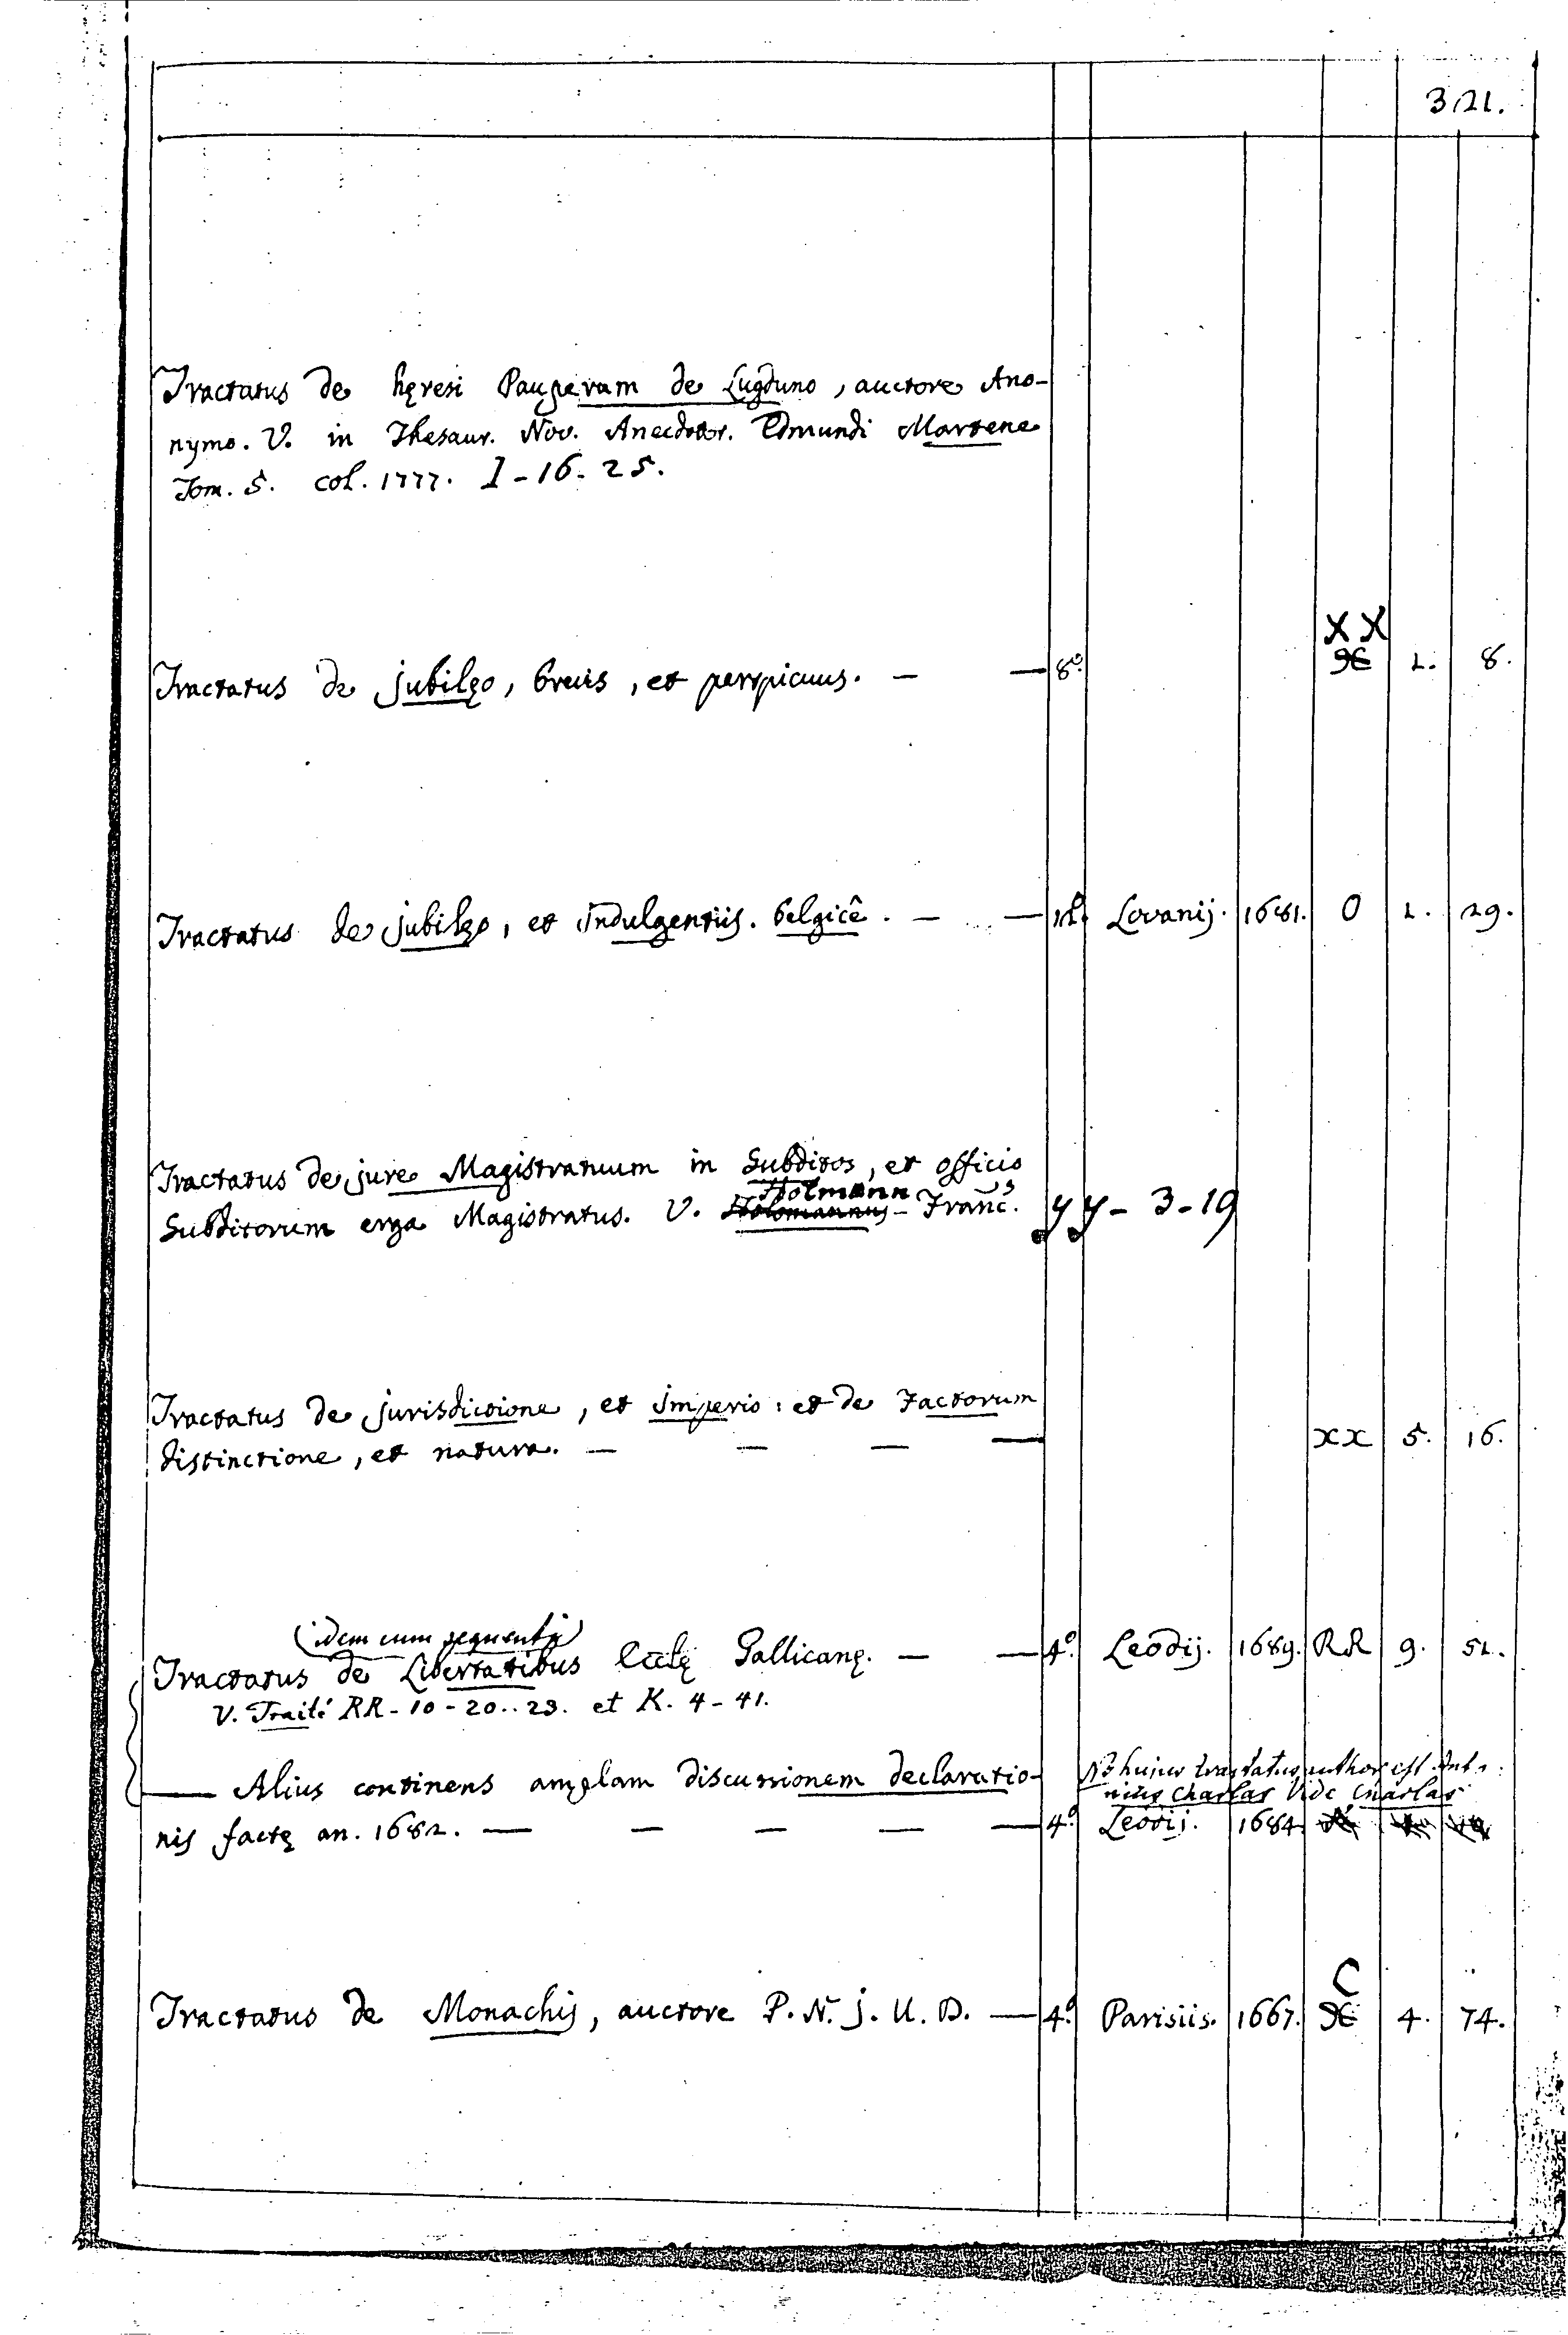 321.
Tractatus de hęresi Pauperum de Lugduno, auctore Ano-
nymo. V. in Thesaur. Nov. Anecdotor. Edmundi Martene
Tom. 5. col. 1777. I - 16 - 25.
XX
Tractatus de jubilęo, brevis, et perspicuus. — — 8.° 2. 8.
Tractatus de jubilęo, et indulgentiis. belgicê. — — 12.° Lovanij. 1681. O 2. 29.
Tractatus de jure Magistratuum in Subditos, et officio
Hotmann
Subditorum erga Magistratus. V. Hotomannus Franc.s yy - 3 - 19
Tractatus de jurisdictione, et imperio: et de Factorum
distinctione, et natura. — — — — XX 5. 16.
(idem cum sequenti)
Tractatus de Libertatibus Eccłę Gallicanę. — — 4.° Leodij. 1689. RR 9. 52.
V. Traité RR - 10 - 20..23. et K. 4 - 41.
— Alius continens amplam discussionem declaratio- NB hujus tractatus author est Anto-
nius Charlas Vide Charlas
nis factę an. 1682. — — — — — 4.° Leodij. 1684.
C
Tractatus de Monachis, auctore P. N. J. U. D. — 4.° Parisiis. 1667. 4. 74.